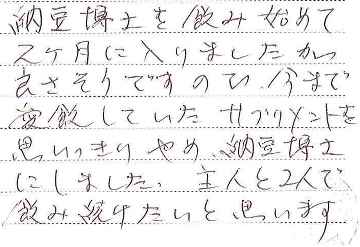 納豆博士を飲み始めて
2ヶ月に入りましたが、
良さそうですので、今まで
愛飲していたサプリメントを
思いっきりやめ、納豆博士
にしました。主人と2人で
飲み続けたいと思います